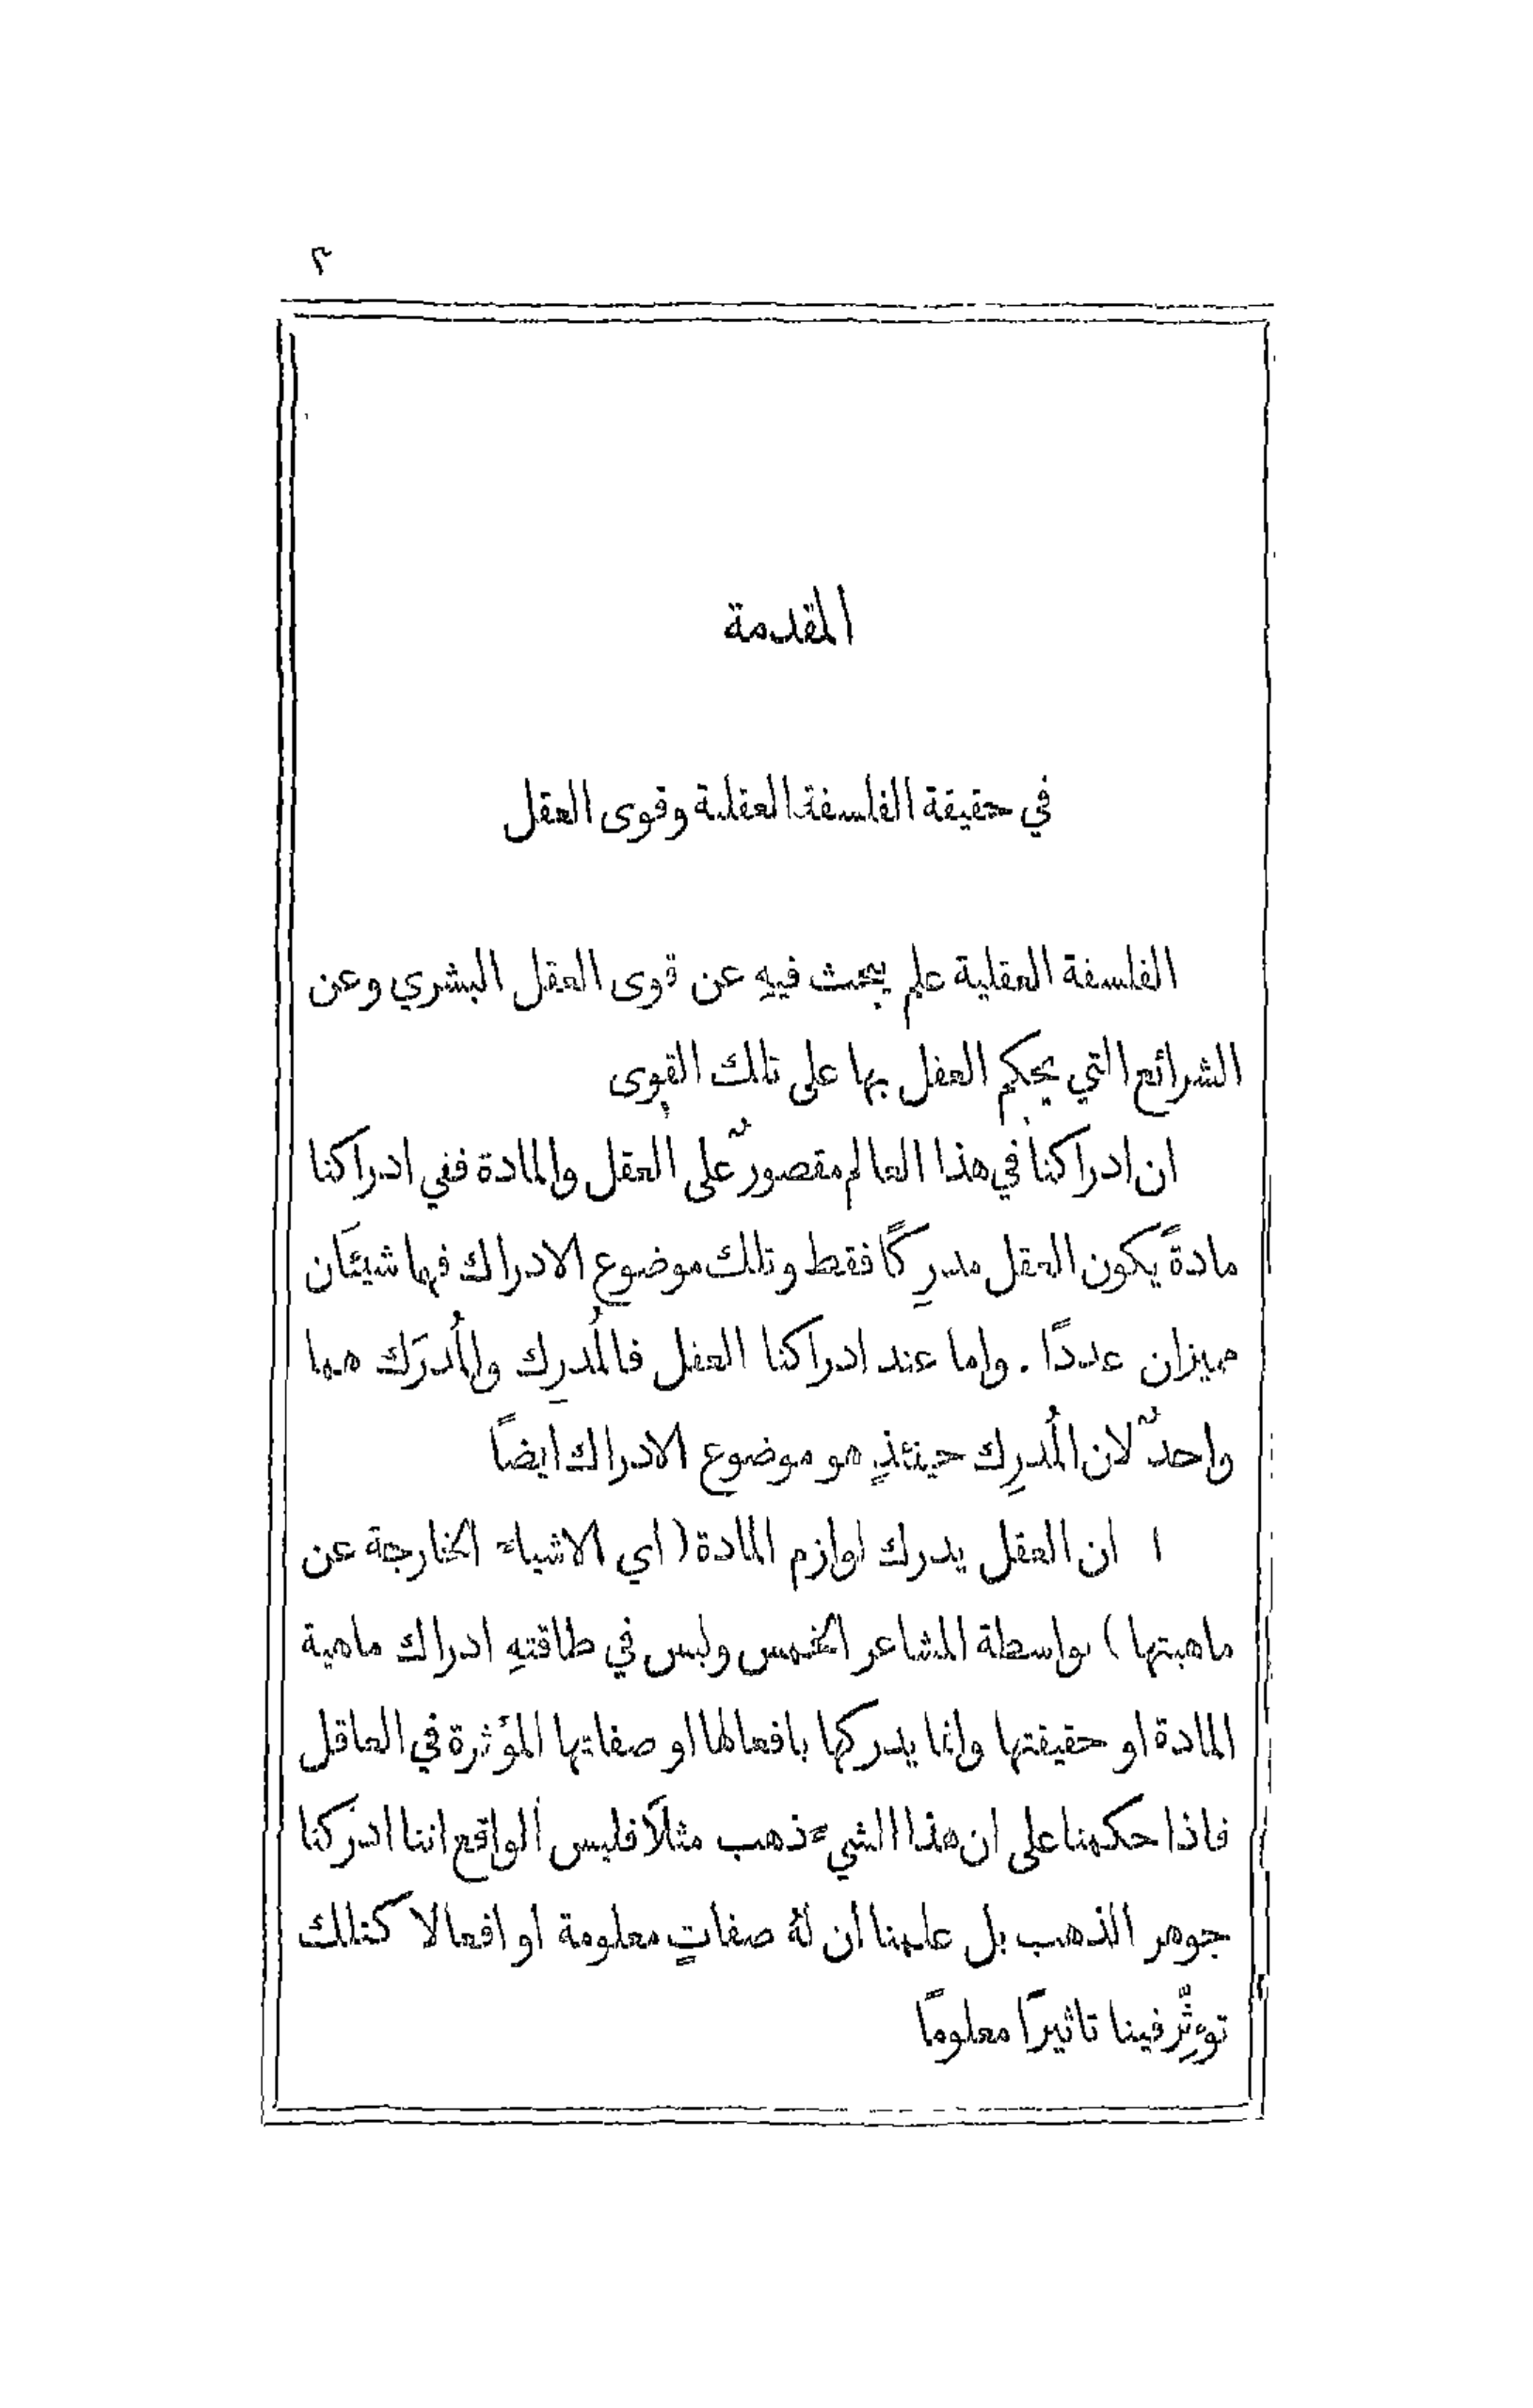 ٣
المقدمة
في حقيقة الفلسفة العقلية وقوى العقل
الفلسفة العقلية علم يبحث فيهِ عن قوى العقل البشري وعن
الشرائع التي يحكم العقل بها على تلك القوى
ان ادراكنا في هذا العالم مقصورٌ على العقل والمادة ففي ادراكنا
مادةً يكون العقل مدرِكًا فقط وتلك موضوع الادراك فهما شيئَان
مميزان عددًا . واما عند ادراكنا العقل فالمُدرِك والمُدرَك هما
واحدٌ لان المُدرِك حينئذٍ هو موضوع الادراك ايضاً
١ ان العقل يدرك لوازم المادة ( اي الاشياء الخارجة عن
ماهيتها ) بواسطة المشاعر الخمس وليس في طاقتهِ ادراك ماهية
المادة او حقيقتها وانما يدركها بافعالها او صفاتها المؤثرة في العاقل
فاذا حكمنا على ان هذا الشيء ذهب مثلاً فليس الواقع اننا ادركنا
جوهر الذهب بل علمنا ان لهُ صفاتٍ معلومة او افعالا كتلك
تؤثِّر فينا تاثيرًا معلومًا